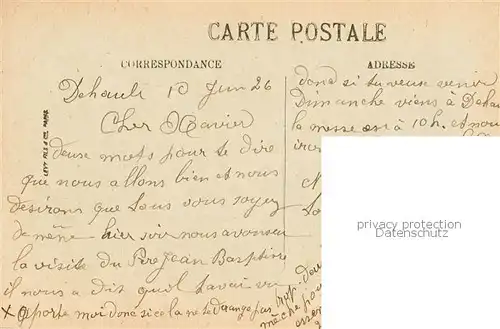 CARTE POSTALE
CORRESPONDANCE
ADRESSE
Dehault 10 Juin 26
Cher Xavier
deux mots pour te dire
que nous allons bien et nous
desirons que tous vous soyez
de même hier soir nous avons eu
la visite du Pere Jean Baptiste
il nous a dit quil savait
apporte moi donc si ce la ne te derange pas
donc si tu veux venir
Dimanche viens à Dehau
la messe est à 10h. et nous
privacy protection
Datenschutz